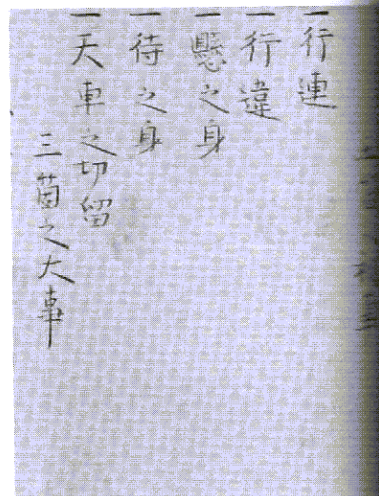 一行連
一行違
一懸之身
一待之身
一天車之切留
三箇之大事